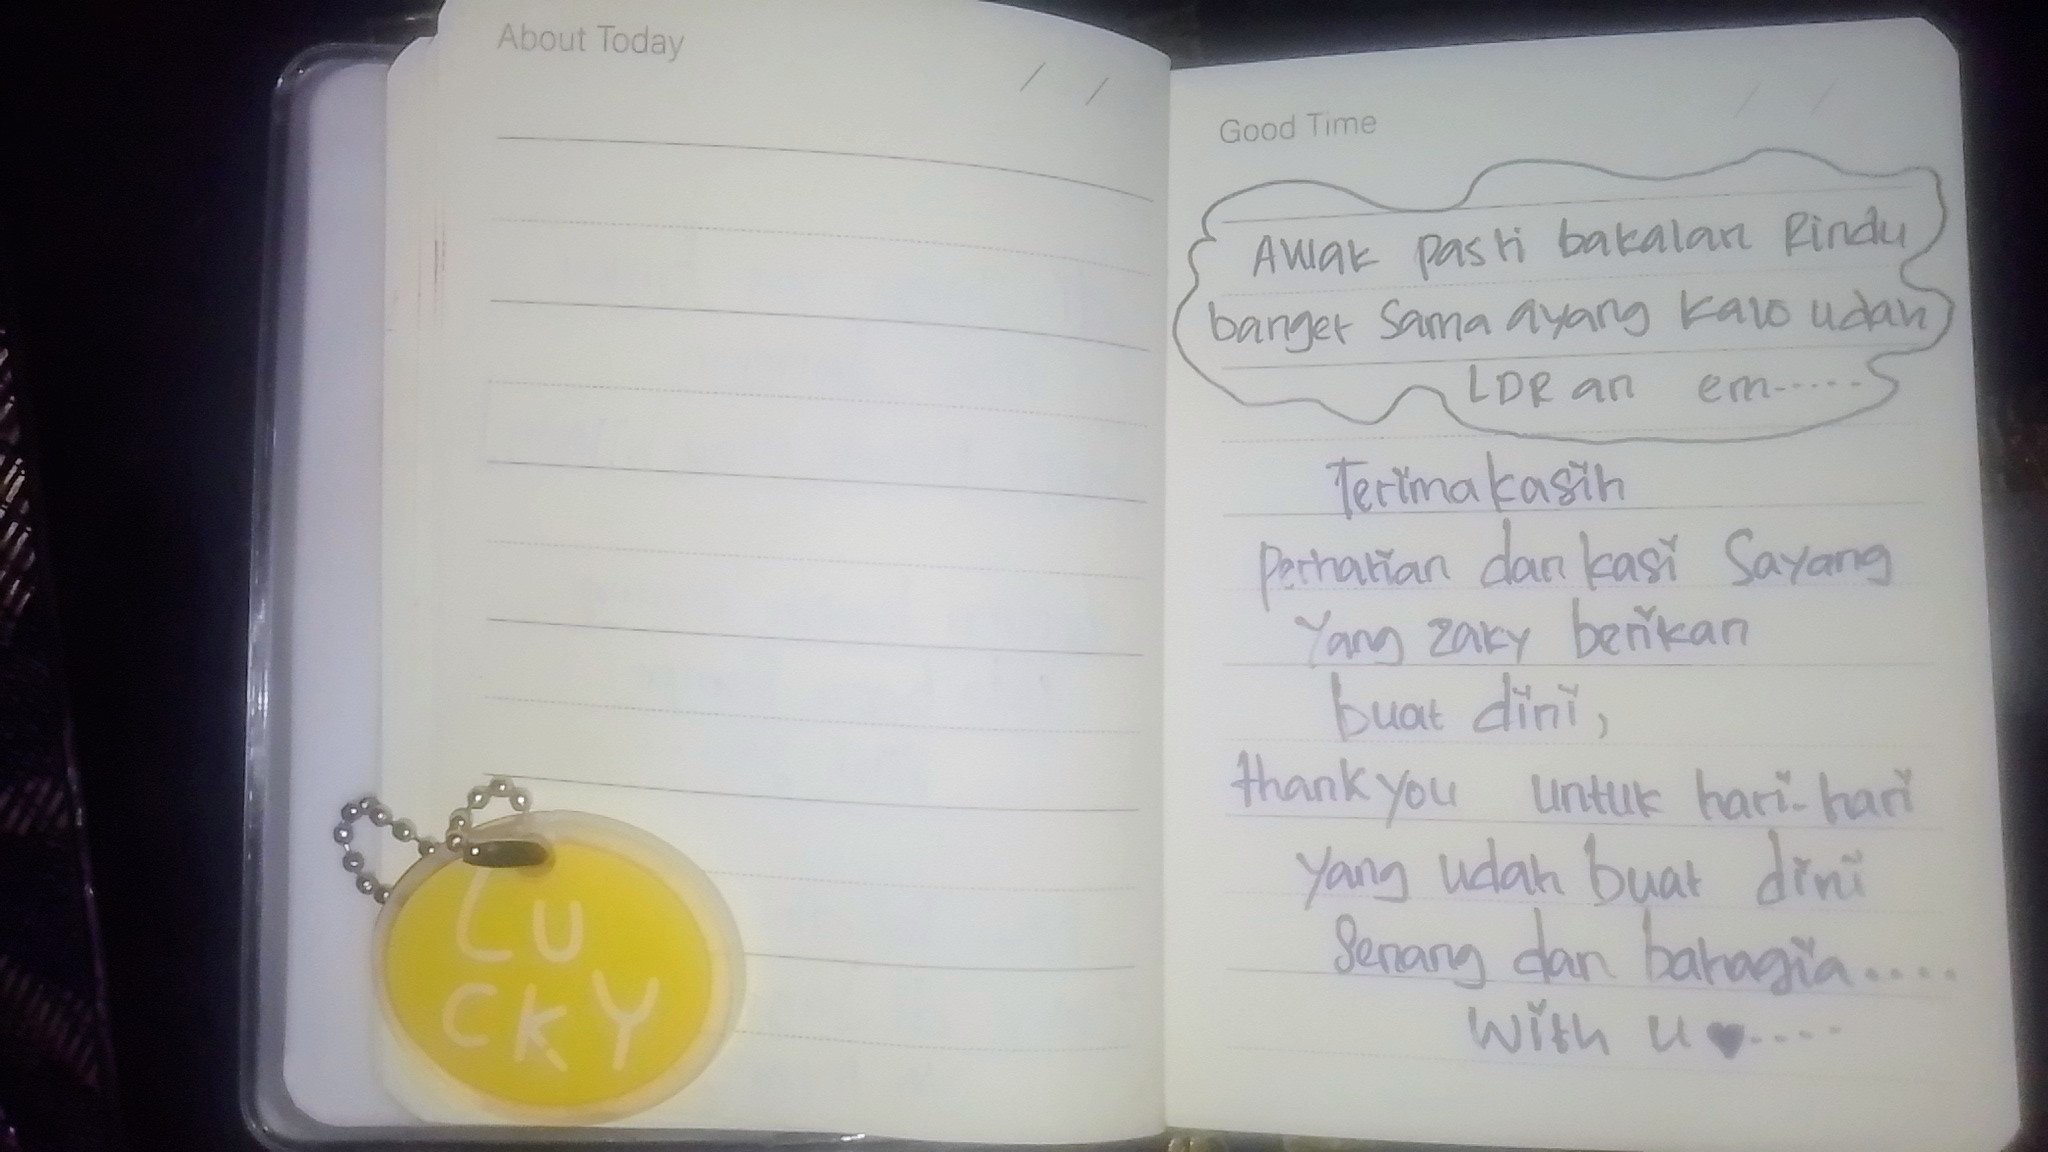 About Today
/ /
LU
CKY
Good Time
/ /
Awak pasti bakalan Rindu
banget Sama ayang kalo udah
LDR an em......
Terimakasih
perhatian dan kasi Sayang
Yang zaky berikan
buat dini,
thank you untuk hari-hari
yang udah buat dini
Senang dan bahagia....
With u ♥....